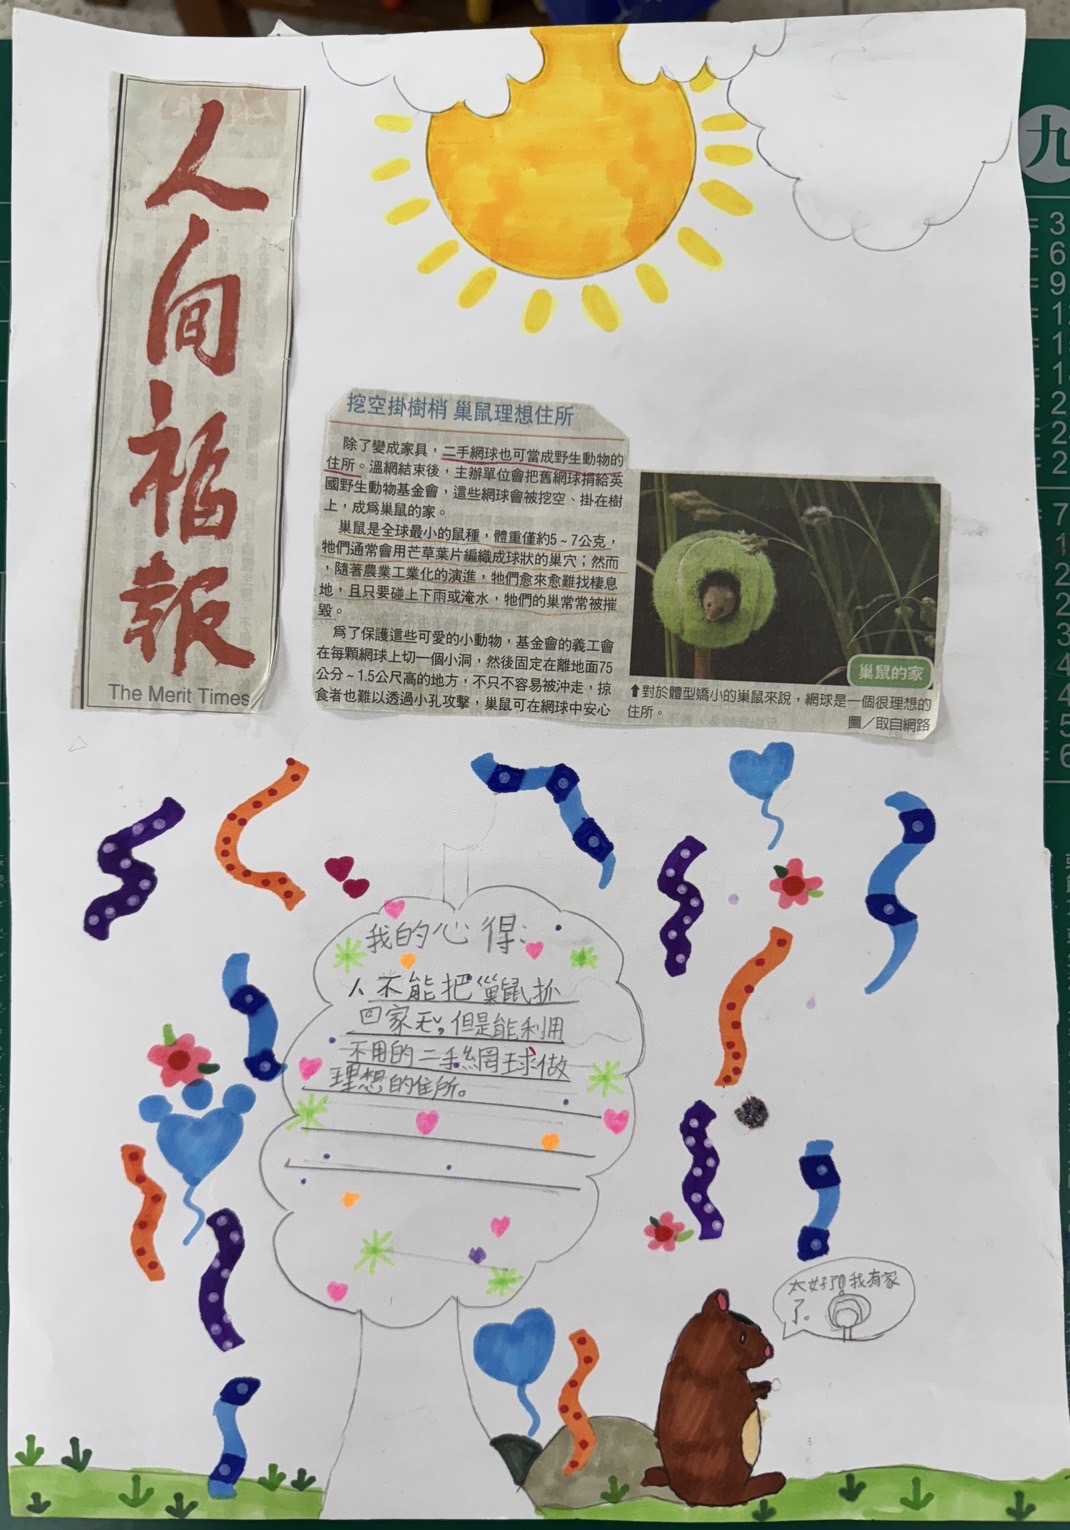 人間福報
The Merit Times
挖空掛樹梢 巢鼠理想住所
除了變成家具，二手網球也可當成野生動物的
住所。溫網結束後，主辦單位會把舊網球捐給英
國野生動物基金會，這些網球會被挖空、掛在樹
上，成為巢鼠的家。
巢鼠是全球最小的鼠種，體重僅約5～7公克，
牠們通常會用芒草葉片編織成球狀的巢穴；然而
，隨著農業工業化的演進，牠們愈來愈難找棲息
地，且只要碰上下雨或淹水，牠們的巢常常被摧
毀。
為了保護這些可愛的小動物，基金會的義工會
在每顆網球上切一個小洞，然後固定在離地面75
公分～1.5公尺高的地方，不只不容易被沖走，掠
食者也難以透過小孔攻擊，巢鼠可在網球中安心
巢鼠的家
⬆對於體型嬌小的巢鼠來說，網球是一個很理想的
住所。
圖／取自網路
我的心得：
人不能把巢鼠抓
回家玩，但是能利用
不用的二手網球做
理想的住所。
太好了！我有家
了。
九
3
6
9